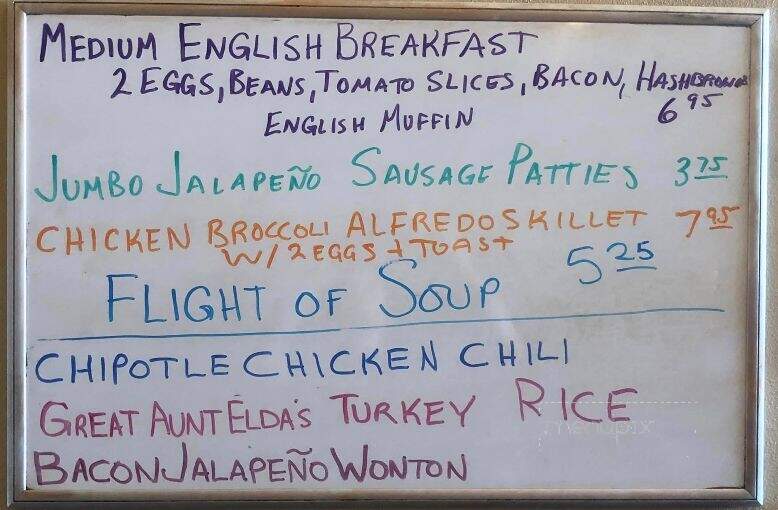 MEDIUM ENGLISH BREAKFAST
2 EGGS, BEANS, TOMATO SLICES, BACON, HASHBROWNS
ENGLISH MUFFIN 6 95
JUMBO JALAPEÑO SAUSAGE PATTIES 3 75
CHICKEN BROCCOLI ALFREDO SKILLET 7 95
W/ 2 EGGS + TOAST
FLIGHT OF SOUP 5 25
CHIPOTLE CHICKEN CHILI
GREAT AUNT ELDA'S TURKEY RICE
menupix
BACON JALAPEÑO WONTON